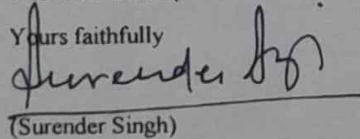 Yours faithfully
Surender Sgh
(Surender Singh)